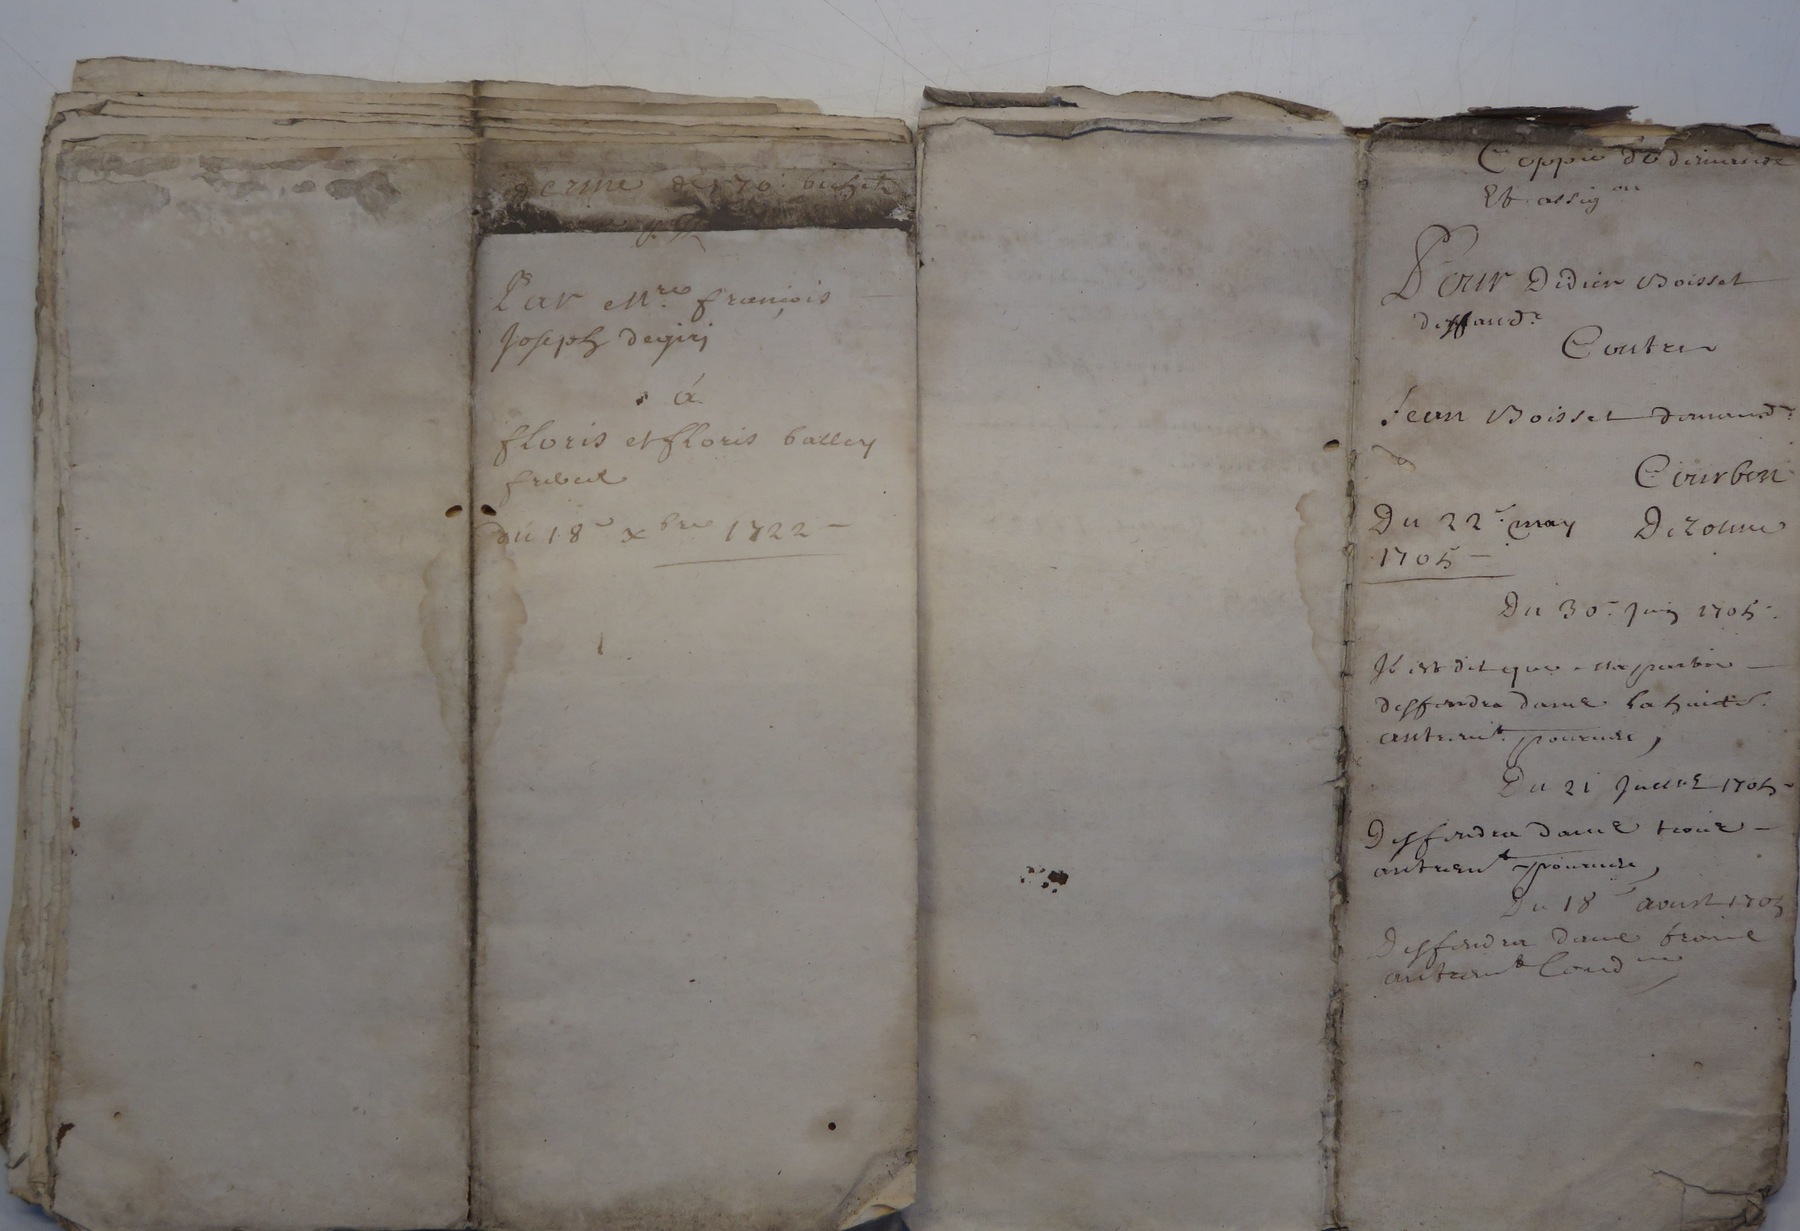 ferme de 170# bichets
Par Mre françois
Joseph degirj
á
floris et floris balley
freres
du 18e xbre 1722
Coppie de demande
Et assigon
Pour Didier Boisset
deffandr
Contre
Jean Boisset demandr
Courbon
Du 22e may Dezolme
1705
Du 30e Juin 1705
Il est dit que sa partie
deffendra dans la huite.
autremt pourveu,
Du 21 Juillet 1705
Deffendra dans trois
autremt pourveu,
Du 18e aoust 1705
Deffendra dans trois
autremt Cond